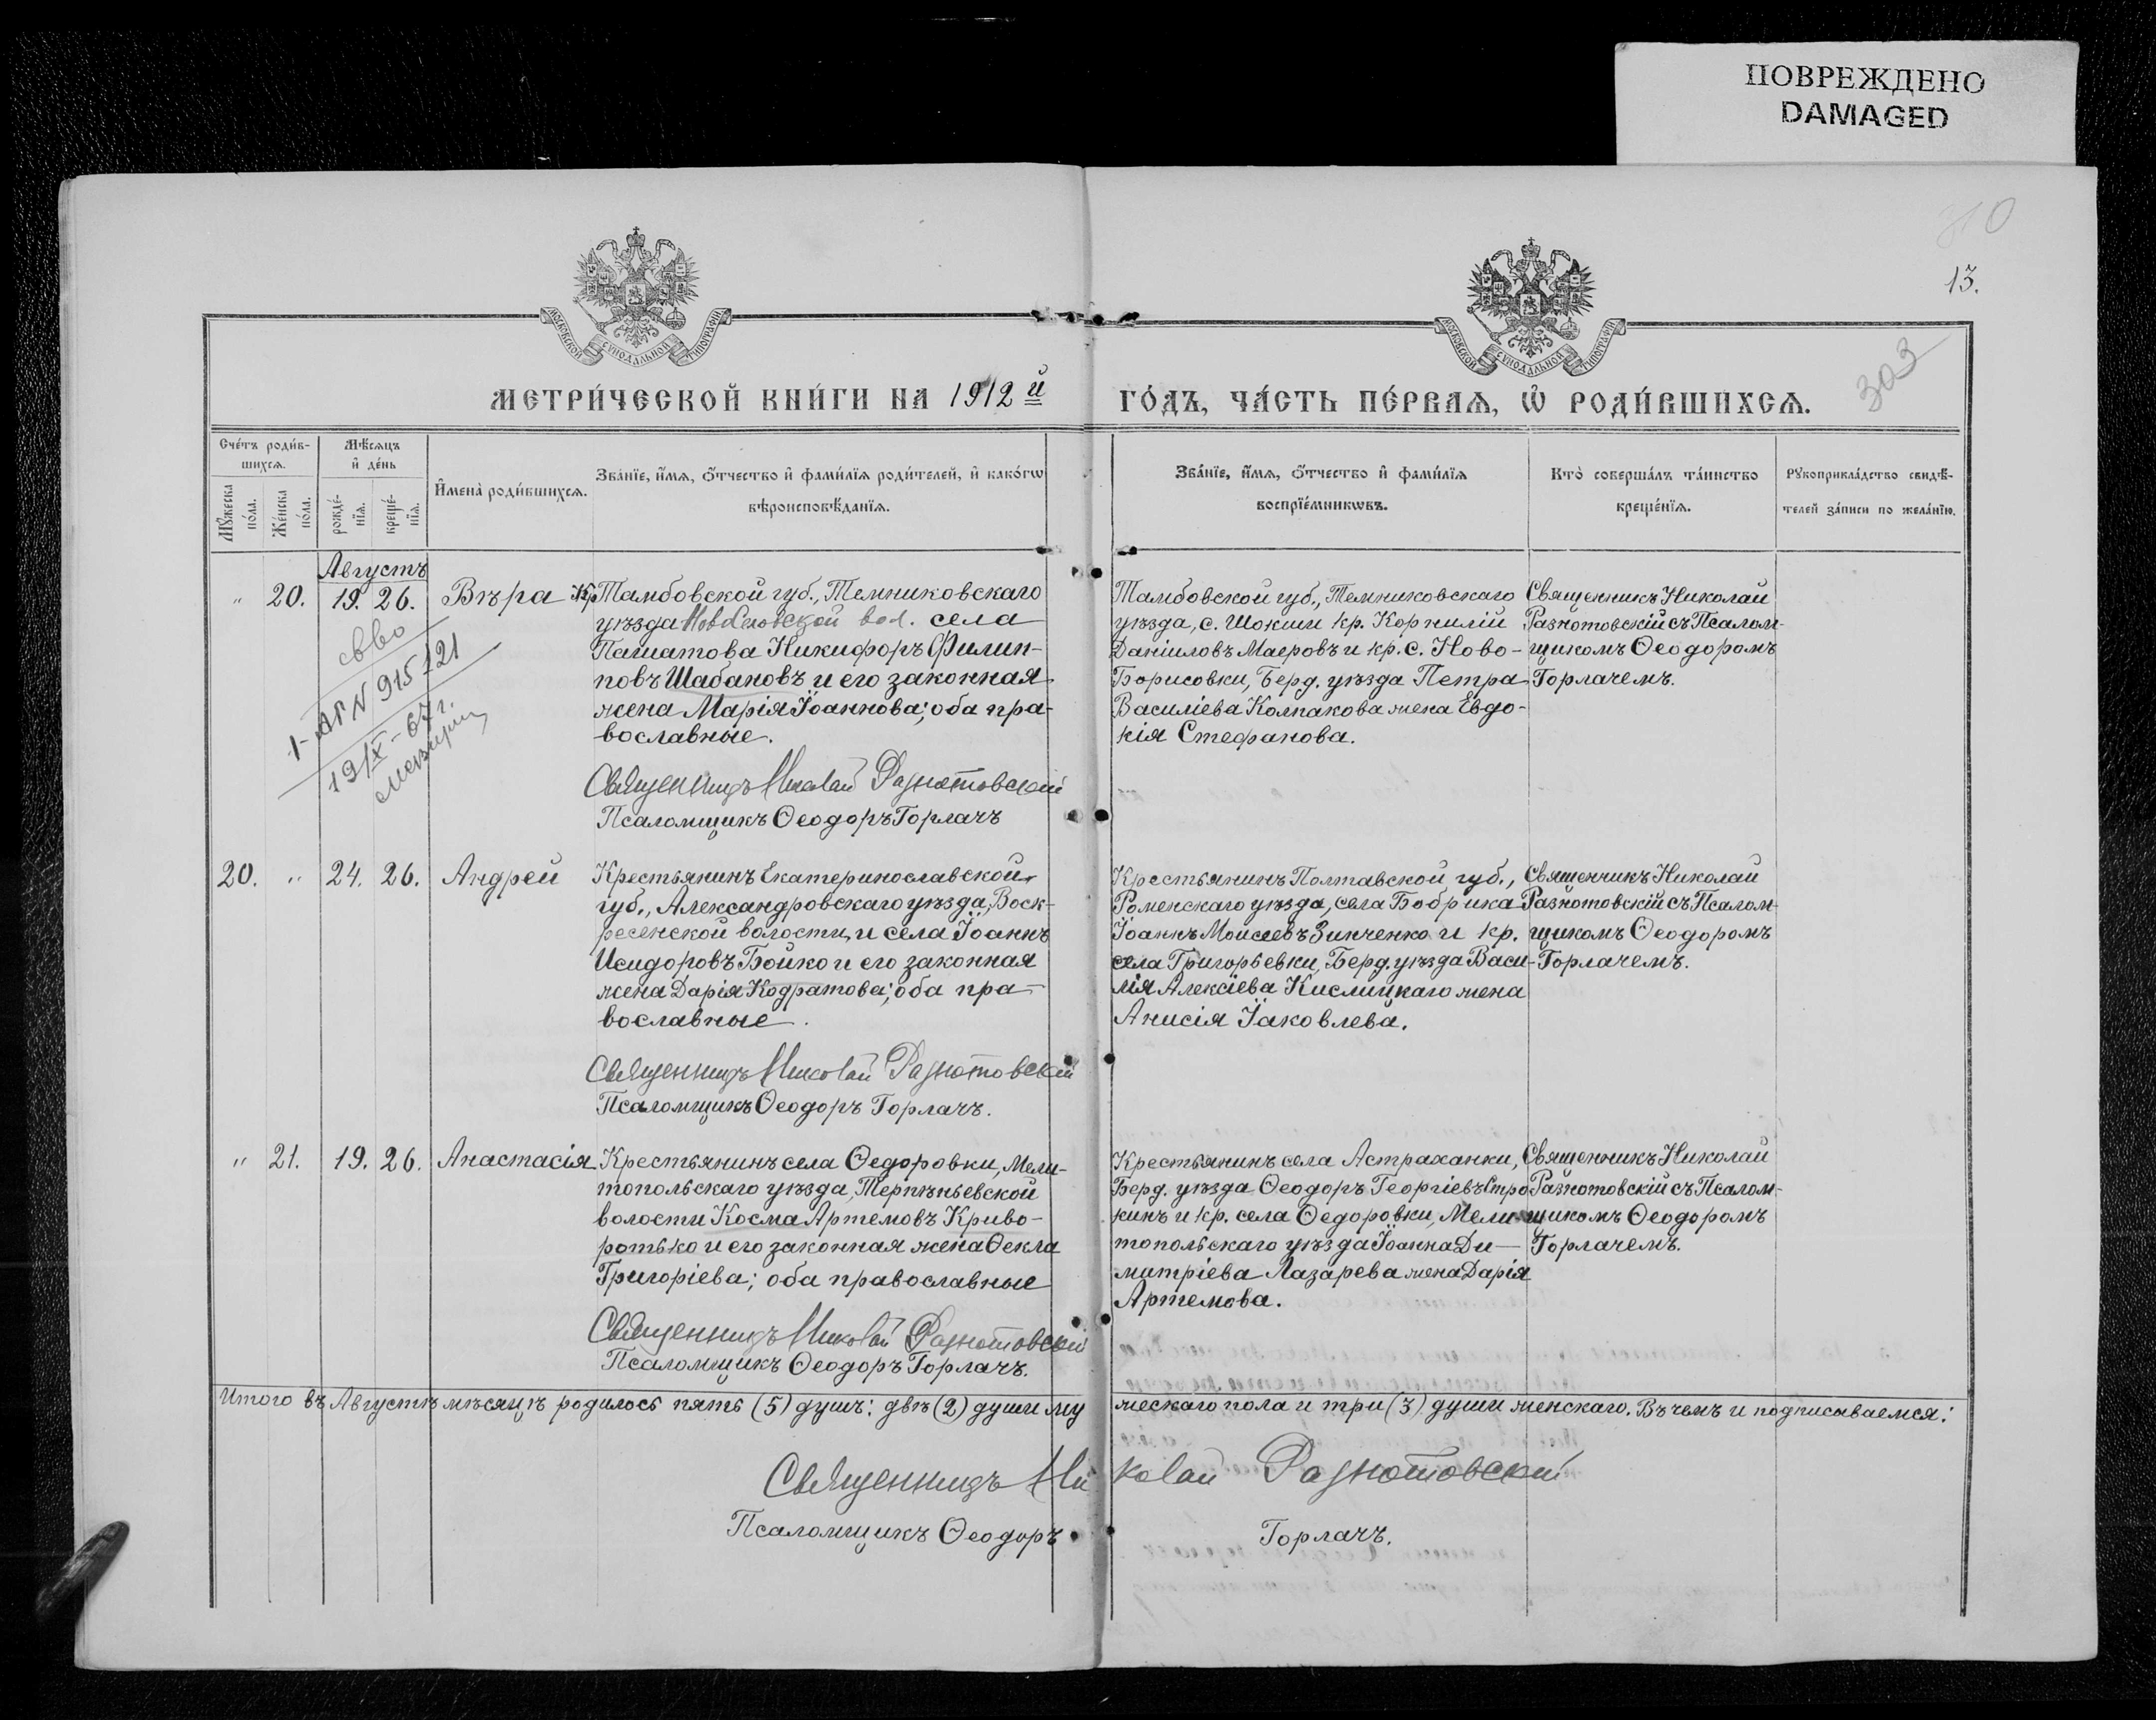 ПОВРЕЖДЕНО
DAMAGED
13.
303
МОСКОВСКОЙ СѴНОДАЛЬНОЙ ТИПОГРАФІИ
МОСКОВСКОЙ СѴНОДАЛЬНОЙ ТИПОГРАФІИ
МЕТРИ́ЧЕСКОЙ КНИ́ГИ НА 1912й ГО́ДЪ, ЧА́СТЬ ПЕ́РВАѦ, Ѽ РОДИ́ВШИХСѦ.
Сче́тъ роди́в-
шихсѧ.
Мꙋ́жеска по́ла.
Же́нска по́ла.
Мѣ́сѧцъ
и҆ де́нь
рожде́-
нїѧ.
креще́-
нїѧ.
И҆мена̀ роди́вшихсѧ.
Зва́нїе, и҆́мѧ, ѻ҆́тчество и҆ фами́лїѧ роди́телей, и҆ како́гѡ
вѣроисповѣ́данїѧ.
Зва́нїе, и҆́мѧ, ѻ҆́тчество и҆ фами́лїѧ
воспрїе́мникѡвъ.
Кто̀ соверша́лъ та́инство
креще́нїѧ.
Рꙋкоприкла́дство свидѣ́-
телей за́писи по жела́нїю.
Августъ
" 20. 19. 26. Вѣра
Кр. Тамбовской губ., Темниковскаго
уѣзда вол. села
Пашатова Никифоръ Филип-
повъ Шабановъ и его законная
жена Марія Іоаннова; оба пра-
вославные.
Священникъ Николай Разнотовскій
Псаломщикъ Ѳеодоръ Горлачъ
Тамбовской губ., Темниковскаго
уѣзда, с. Шокши кр. Корнилій
Даніиловъ Маеровъ и кр. с. Ново-
Борисовки, Берд. уѣзда Петра
Василіева Колпакова жена Евдо-
кія Стефанова.
Священникъ Николай
Разнотовскій съ Псалом-
щикомъ Ѳеодоромъ
Горлачемъ.
1-АП N 915121
19/IX-67г.
20. " 24. 26. Андрей
Крестьянинъ Екатеринославской
губ., Александровскаго уѣзда, Воск-
ресенской волости, и села Іоаннъ
Исидоровъ Бойко и его законная
жена Дарія Кодратова; оба пра-
вославные.
Священникъ Николай Разнотовскій
Псаломщикъ Ѳеодоръ Горлачъ.
Крестьянинъ Полтавской губ.,
Роменскаго уѣзда, села Бобрика
Іоаннъ Моисеевъ Зинченко и кр.
села Григорьевки, Берд. уѣзда Васи-
лія Алексіева Кислицкаго жена
Анисія Іаковлева.
Священникъ Николай
Разнотовскій съ Псалом-
щикомъ Ѳеодоромъ
Горлачемъ.
" 21. 19. 26. Анастасія
Крестьянинъ села Ѳедоровки, Мели-
топольскаго уѣзда, Терпѣньевской
волости Косма Артемовъ Криво-
ротько и его законная жена Ѳекла
Григоріева; оба православные
Священникъ Николай Разнотовскій
Псаломщикъ Ѳеодоръ Горлачъ.
Крестьянинъ села Астраханки,
Берд. уѣзда Ѳеодоръ Георгіевъ Стро
кинъ и кр. села Ѳедоровки, Мели-
топольскаго уѣзда Іоанна Ди-
митріева Лазарева жена Дарія
Артемова.
Священникъ Николай
Разнотовскій съ Псалом-
щикомъ Ѳеодоромъ
Горлачемъ.
Итого въ Августѣ мѣсяцѣ родилось пять (5) душъ: двѣ (2) души му жескаго пола и три (3) души женскаго. Въ чемъ и подписываемся:
Священникъ Николай Разнотовскій
Псаломщикъ Ѳеодоръ Горлачъ.